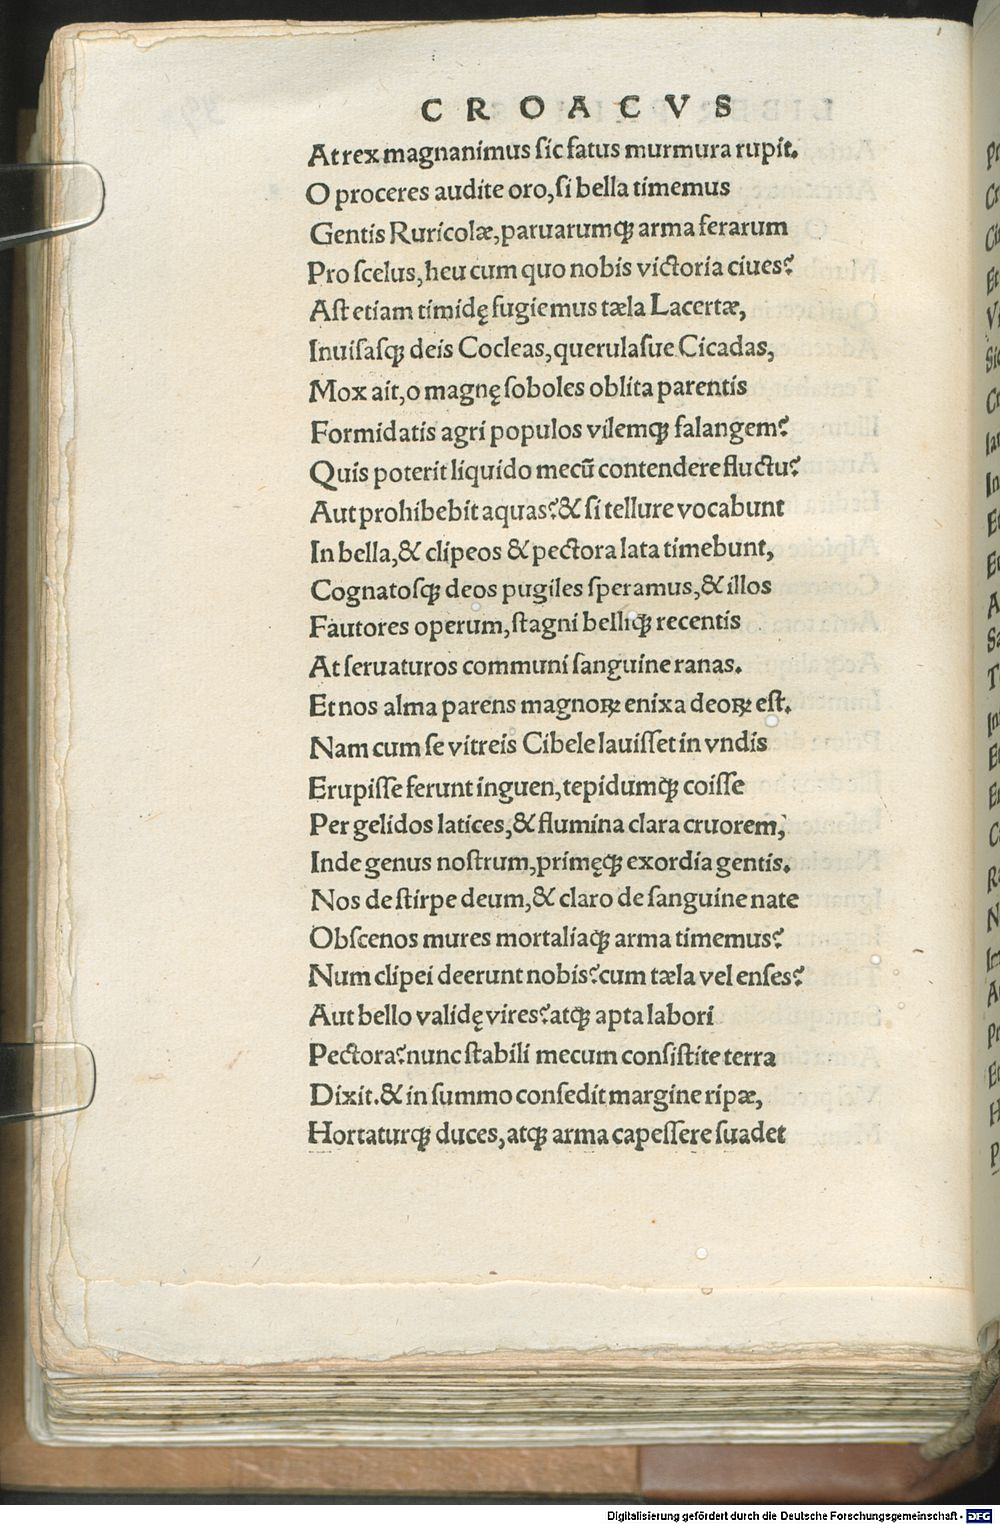 CROACVS
At rex magnanimus sic fatus murmura rupit.
O proceres audite oro, si bella timemus
Gentis Ruricolæ, paruarumqꝫ arma ferarum
Pro scelus, heu cum quo nobis victoria ciues?
Ast etiam timidę fugiemus tæla Lacertæ,
Inuisasqꝫ deis Cocleas, querulasue Cicadas,
Mox ait, o magnę soboles oblita parentis
Formidatis agri populos vilemqꝫ falangem?
Quis poterit liquido mecũ contendere fluctu?
Aut prohibebit aquas? & si tellure vocabunt
In bella, & clipeos & pectora lata timebunt,
Cognatosqꝫ deos pugiles speramus, & illos
Fautores operum, stagni belliqꝫ recentis
At seruaturos communi sanguine ranas.
Et nos alma parens magnoꝝ enixa deoꝝ est.
Nam cum se vitreis Cibele lauisset in vndis
Erupisse ferunt inguen, tepidumqꝫ coisse
Per gelidos latices, & flumina clara cruorem,
Inde genus nostrum, primęqꝫ exordia gentis.
Nos de stirpe deum, & claro de sanguine nate
Obscenos mures mortaliaqꝫ arma timemus?
Num clipei deerunt nobis? cum tæla vel enses?
Aut bello validę vires? atqꝫ apta labori
Pectora? nunc stabili mecum consistite terra
Dixit. & in summo consedit margine ripæ,
Hortaturqꝫ duces, atqꝫ arma capessere suadet
Digitalisierung gefördert durch die Deutsche Forschungsgemeinschaft - DFG